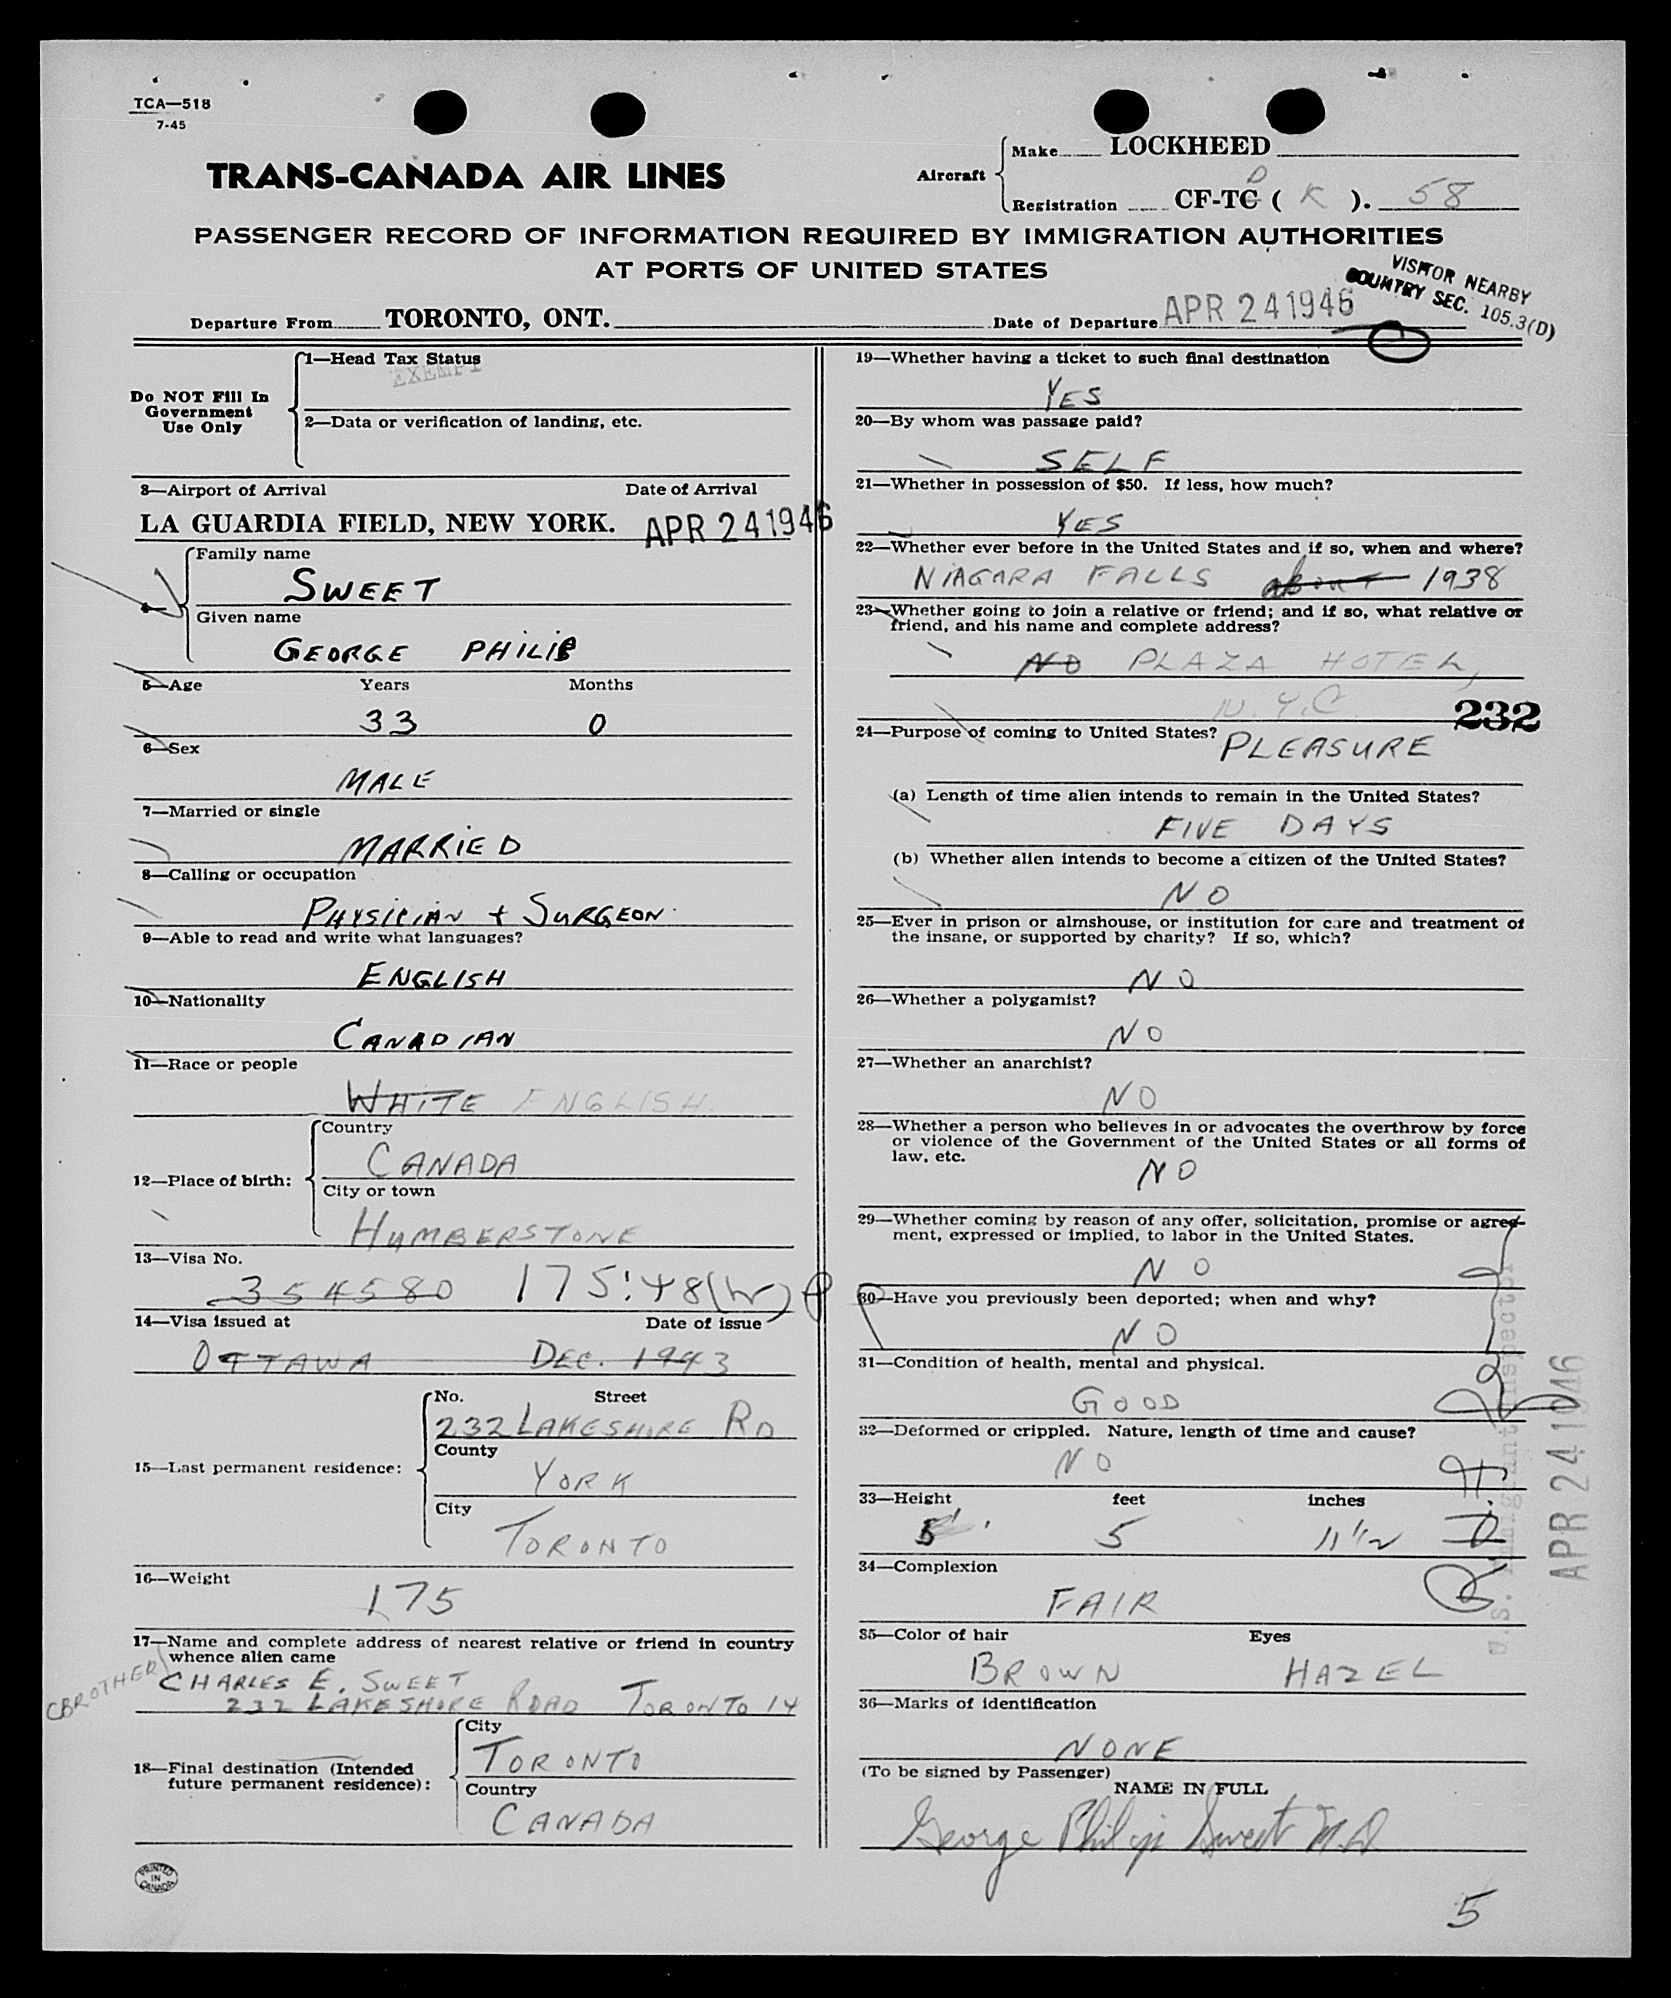 TCA—518
7-45
TRANS-CANADA AIR LINES
Aircraft
Make LOCKHEED
D
Registration CF-TC ( K ). 58
PASSENGER RECORD OF INFORMATION REQUIRED BY IMMIGRATION AUTHORITIES
AT PORTS OF UNITED STATES
VISITOR NEARBY
COUNTRY SEC. 105.3(D)
Departure From TORONTO, ONT. Date of Departure APR 24 1946
1—Head Tax Status
EXEMPT
Do NOT Fill In
Government
Use Only
2—Data or verification of landing, etc.
3—Airport of Arrival Date of Arrival
LA GUARDIA FIELD, NEW YORK. APR 24 1946
4—
Family name
SWEET
Given name
GEORGE PHILIP
5—Age Years Months
33 0
6—Sex
MALE
7—Married or single
MARRIED
8—Calling or occupation
PHYSICIAN + SURGEON
9—Able to read and write what languages?
ENGLISH
10—Nationality
CANADIAN
11—Race or people
WHITE ENGLISH
12—Place of birth:
Country
CANADA
City or town
HUMBERSTONE
13—Visa No.
354580 175:48(W)
14—Visa issued at Date of issue
OTTAWA DEC. 1943
15—Last permanent residence:
No. Street
232 LAKESHORE RD
County
YORK
City
TORONTO
16—Weight
175
17—Name and complete address of nearest relative or friend in country
whence alien came
(BROTHER) CHARLES E. SWEET
232 LAKESHORE ROAD TORONTO 14
18—Final destination (Intended
future permanent residence):
City
TORONTO
Country
CANADA
PRINTED
IN
CANADA
19—Whether having a ticket to such final destination
YES
20—By whom was passage paid?
SELF
21—Whether in possession of $50. If less, how much?
YES
22—Whether ever before in the United States and if so, when and where?
NIAGARA FALLS about 1938
23—Whether going to join a relative or friend; and if so, what relative or
friend, and his name and complete address?
NO PLAZA HOTEL,
N.Y.C
232
24—Purpose of coming to United States?
PLEASURE
(a) Length of time alien intends to remain in the United States?
FIVE DAYS
(b) Whether alien intends to become a citizen of the United States?
NO
25—Ever in prison or almshouse, or institution for care and treatment of
the insane, or supported by charity? If so, which?
NO
26—Whether a polygamist?
NO
27—Whether an anarchist?
NO
28—Whether a person who believes in or advocates the overthrow by force
or violence of the Government of the United States or all forms of
law, etc.
NO
29—Whether coming by reason of any offer, solicitation, promise or agree-
ment, expressed or implied, to labor in the United States.
NO
30—Have you previously been deported; when and why?
NO
31—Condition of health, mental and physical.
GOOD
32—Deformed or crippled. Nature, length of time and cause?
NO
33—Height feet inches
5 11 1/2
34—Complexion
FAIR
35—Color of hair Eyes
BROWN HAZEL
36—Marks of identification
NONE
(To be signed by Passenger)
NAME IN FULL
George Philip Sweet M.D.
U.S. Immigrant Inspector
APR 24 1946
5